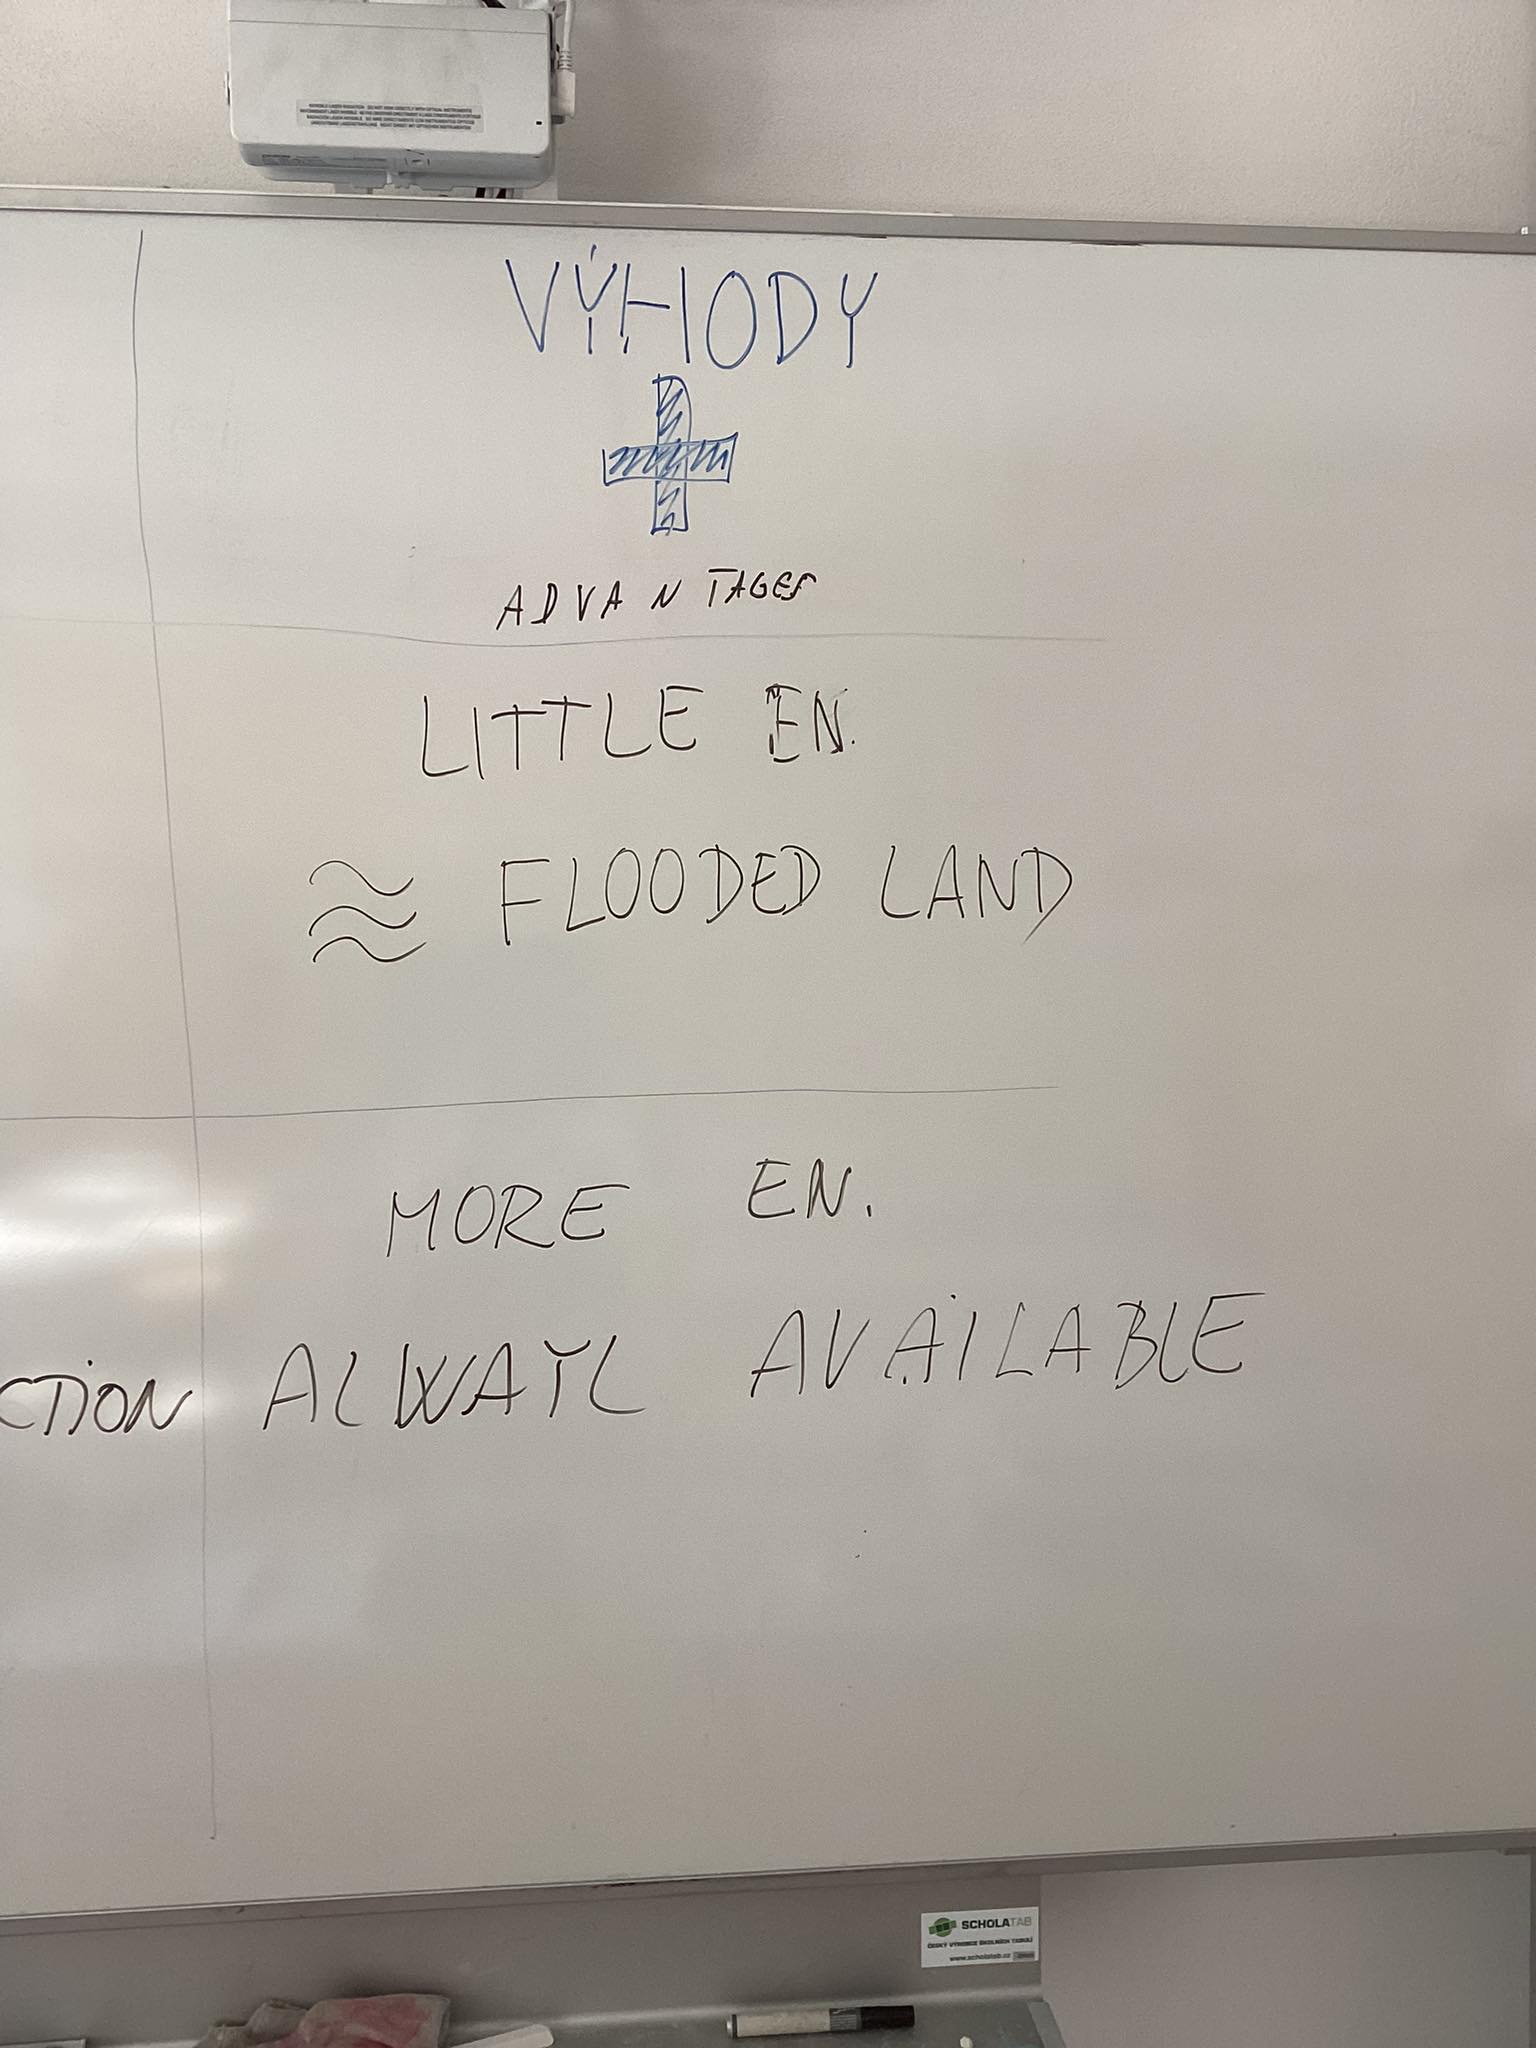 VÝHODY
ADVANTAGES
LITTLE EN.
FLOODED LAND
MORE EN.
CTION ALWAYS AVAILABLE
SCHOLATAB
ČESKÝ VÝROBCE ŠKOLNÍCH TABULÍ
www.scholatab.cz